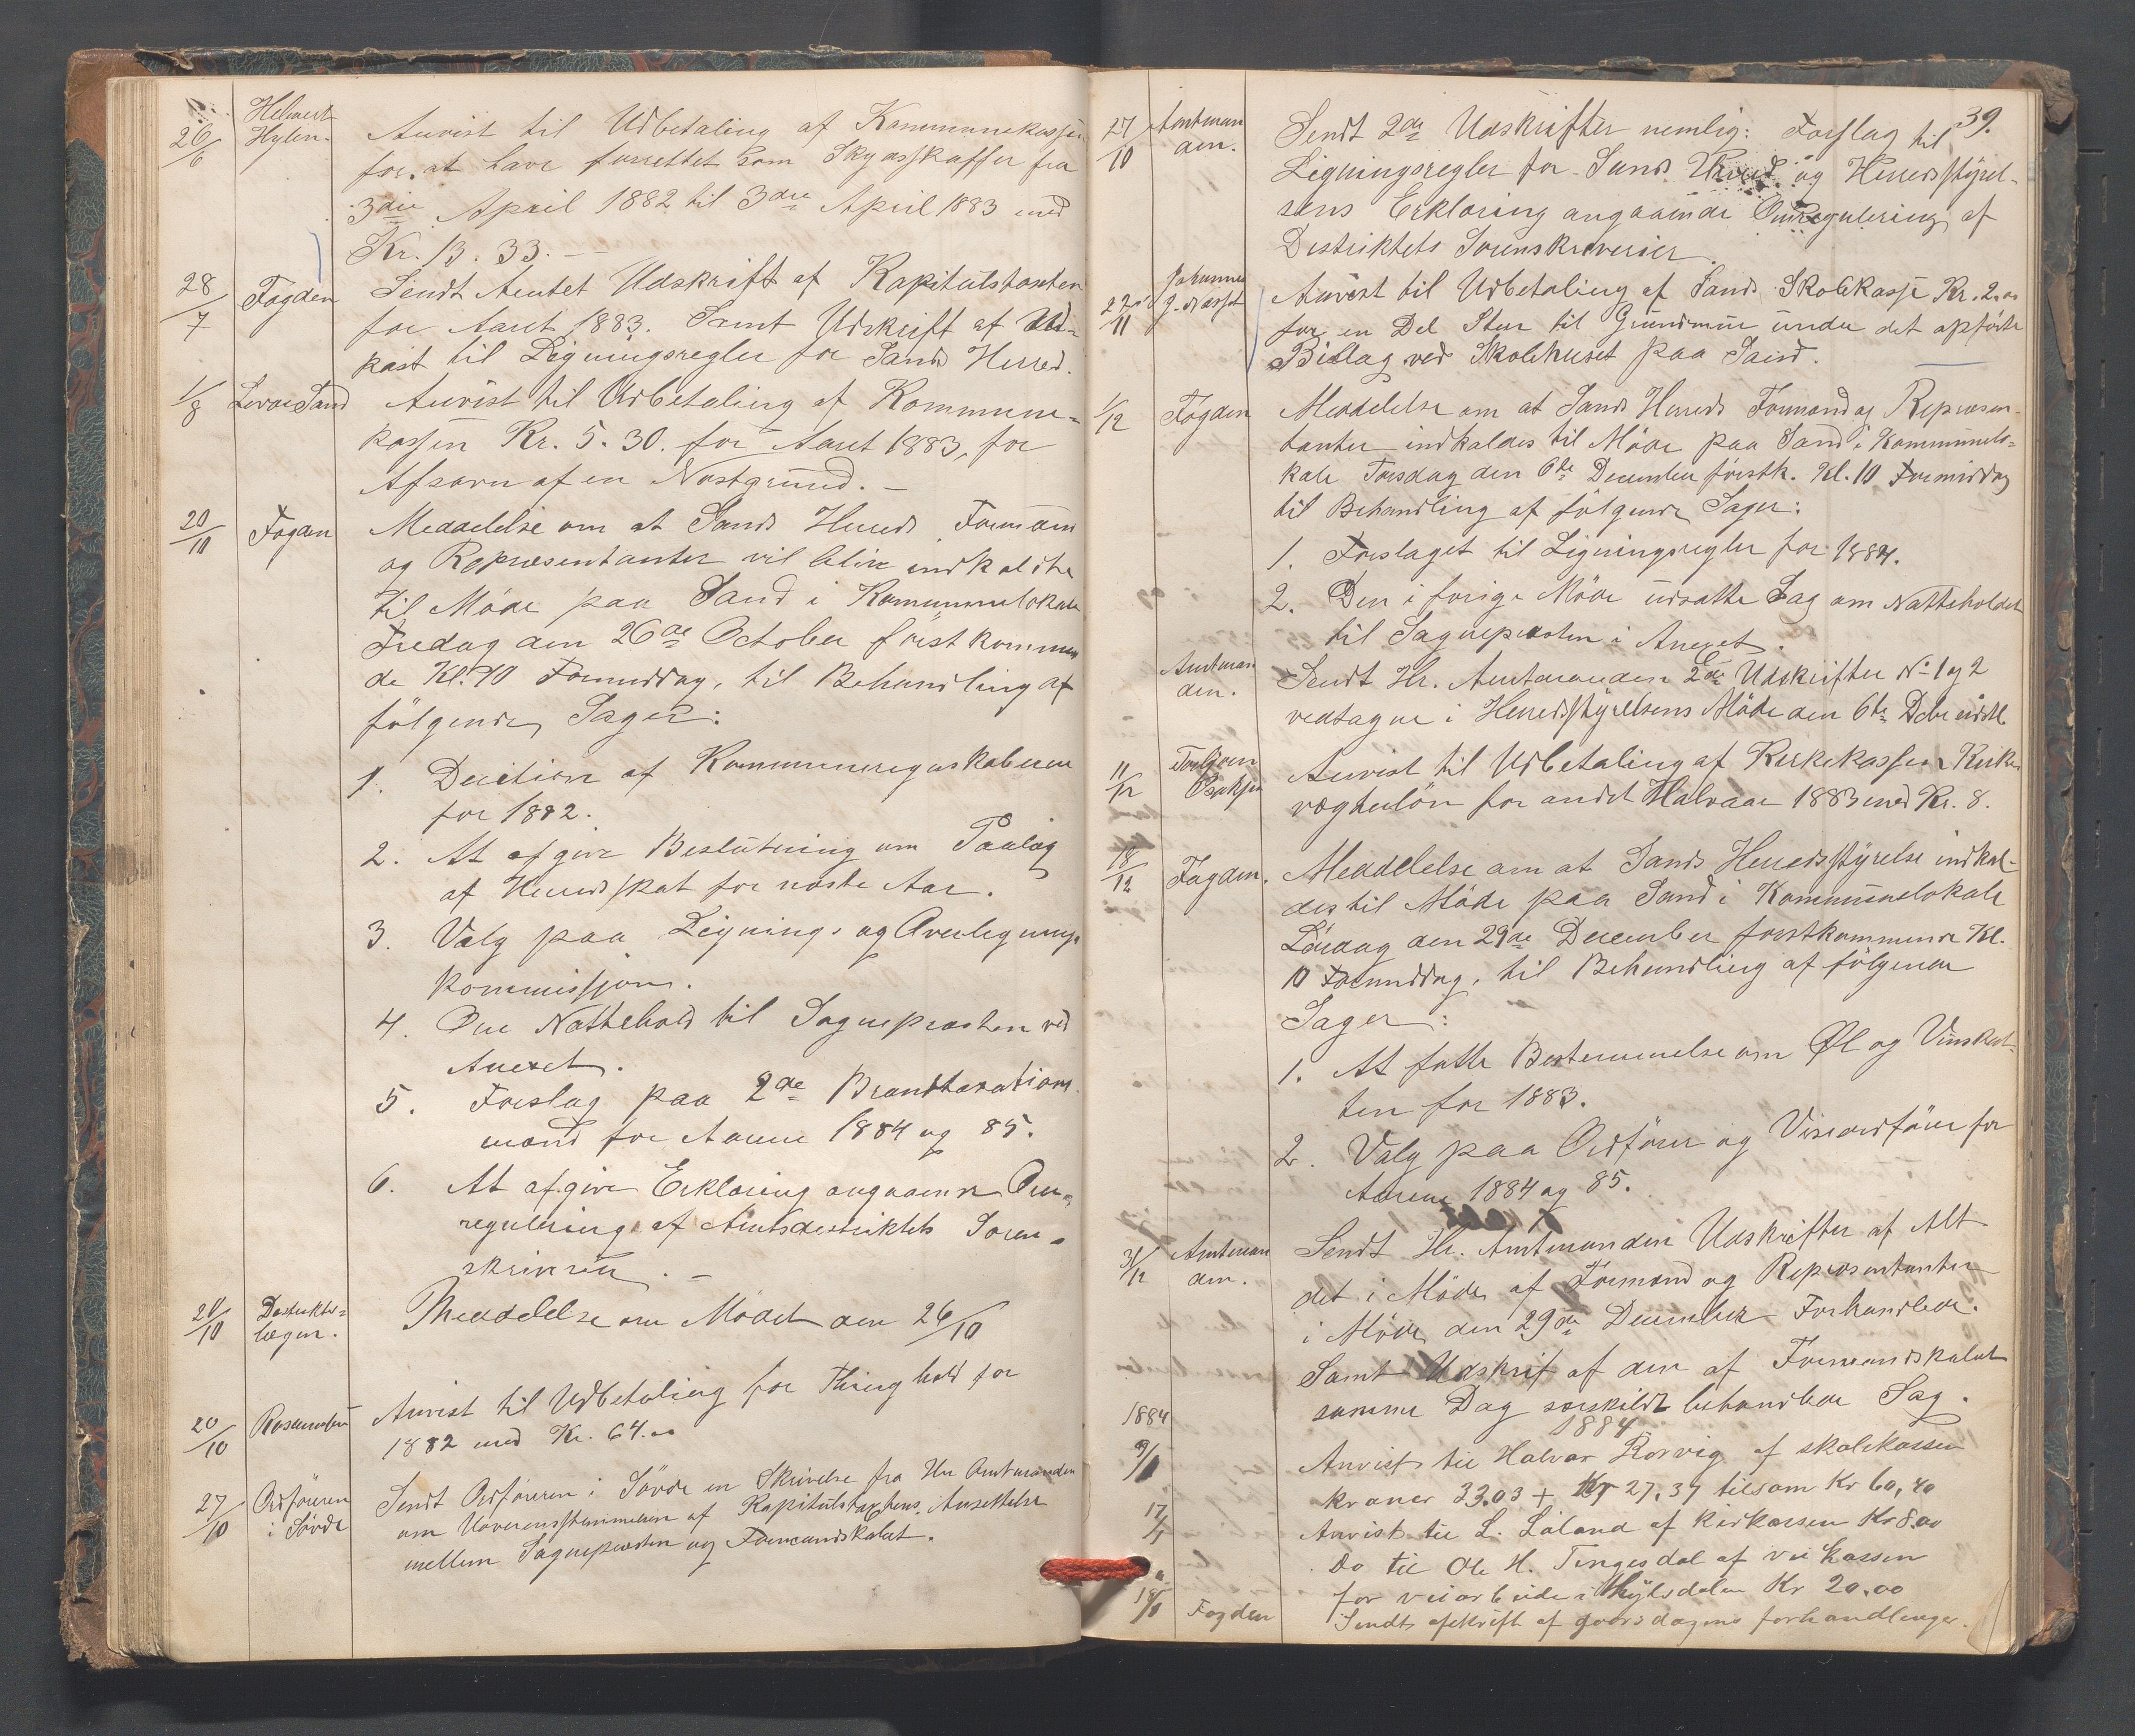 26/6 Helmert Hylen. Anvist til Udbetaling af Kommunekassen
for at have forrettet som Skydsskaffer fra
3die April 1882 til 3die April 1883 med
Kr. 13. 33. —
28/7 Fogden Sendt Amtet Udskrift af Kapitulstaxten
for Aaret 1883. Samt Udskrift af Ud-
kast til Ligningsregler for Sands Herred.
1/8 Sand Anvist til Udbetaling af Kommune-
kassen Kr. 5. 30. for Aaret 1883, for
Afsavn af en Nøstgrund. —
20/10 Fogden Meddelelse om at Sands Herreds Formænd
og Repræsentanter vil blive indkaldte
til Møde paa Sand i Kommunelokale
Fredag den 26de October førstkommen
de Kl. 10 Formiddag, til Behandling af
følgende Sager:
1. Decition af Kommuneregnskaberne
for 1882.
2. At afgive Beslutning om Paalæg
af Herredsskat for næste Aar.
3. Valg paa Lignings og Overlignings
kommissjon.
4. Om Nattehold til Sognepræsten ved
Anexet.
5. Forslag paa 2de Brandtaxations
mænd for Aarene 1884 og 85.
6. At afgive Erklæring angaaende Om-
regulering af Amtsdestriktets Soren-
skriverier. —
20/10 Destrikts-
lægen. Meddelelse om Mødet den 26/10
20/10 Anvist til Udbetaling for Thinghold for
1882 med Kr. 64.00
27/10 Ordføreren
i Søvde Sendt Ordføreren i Søvde en Skrivelse fra Hr Amtmanden
om Uoverensstemmelsen af Kapitulstaxtens Ansættelse
mellem Sognepræsten og Formandskabet.
39.
27/10 Amtman
den. Sendt 2de Udskrifter nemlig: Forslag til
Ligningsregler for Sands Herred og Herredsstyrel-
sens Erklæring angaaende Omregulering af
Destriktets Sorenskriverier.
22/11 Johannes Anvist til Udbetaling af Sands Skolekasse Kr. 2.00
for en Del Sten til Grundmur under det opførte
Bislag ved Skolehuset paa Sand.
1/12 Fogden Meddelelse om at Sands Herreds Formænd og Repræsen-
tanter indkaldes til Møde paa Sand i Kommunelo-
kale Torsdag den 6te December førstk. Kl. 10 Formiddag
til Behandling af følgende Sager:
1. Forslaget til Ligningsregler for 1884.
2. Den i forige Møde udsatte Sag om Natteholdet
til Sognepræsten i Anexet.
Amtman
den. Sendt Hr. Amtmanden 2de Udskrifter No 1 og 2
vedtagne i Herredsstyrelsens Møde den 6te Dcbr
11/12 Anvist til Udbetaling af Kirkekassen Kirke
vægterløn for andet Halvaar 1883 med Kr. 8.
18/12 Fogden. Meddelelse om at Sands Herredsstyrelse indkal-
des til Møde paa Sand i Kommunelokale
Lørdag den 29de December førstkommende Kl.
10 Formiddag, til Behandling af følgende
Sager:
1. At fatte Bestemmelse om Øl og Vinskat-
ten for 1883.
2. Valg paa Ordfører og Viseordfører for
Aarene 1884 og 85.
31/12 Amtman
den. Sendt Hr. Amtmanden Udskrifter af Alt
det i Møde af Formænd og Repræsentanter
i Møde den 29de December Forhandlede.
Samt Udskrif af den af Formandskabet
samme Dag særskildt behandlede Sag.
1884
1884
9/1 Anvist til Halvar Rørvig af skolekassen
kroner 33.03 + Kr 27,37 tilsam Kr 60,40
17/1 Anvist til L. Laland af kirkassen Kr 8.00
Do til Ole H. Tengesdal af veikassen
for veiarbeide i Hylsdalen Kr 20.00
18/1 Fogden Sendt afskrift af gaarsdagens forhandlinger.